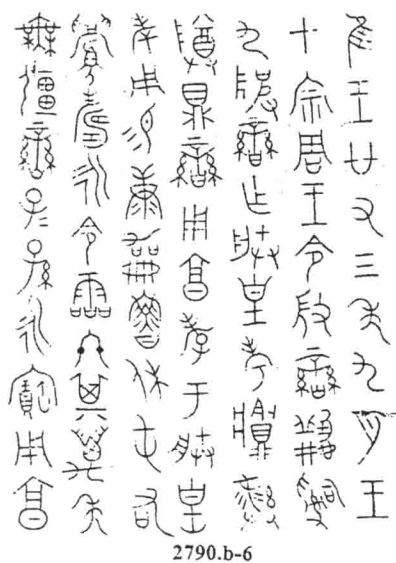 隹王廿又三年九月王
才宗周王令𢼸䜌𦔻𤔲
九陂䜌乍朕皇考𩰬彝
尊鼎䜌用享孝于朕皇
考用易康魯休屯右
眉壽永令霝冬其萬年
無疆䜌子子孫永寶用享
2790.b-6